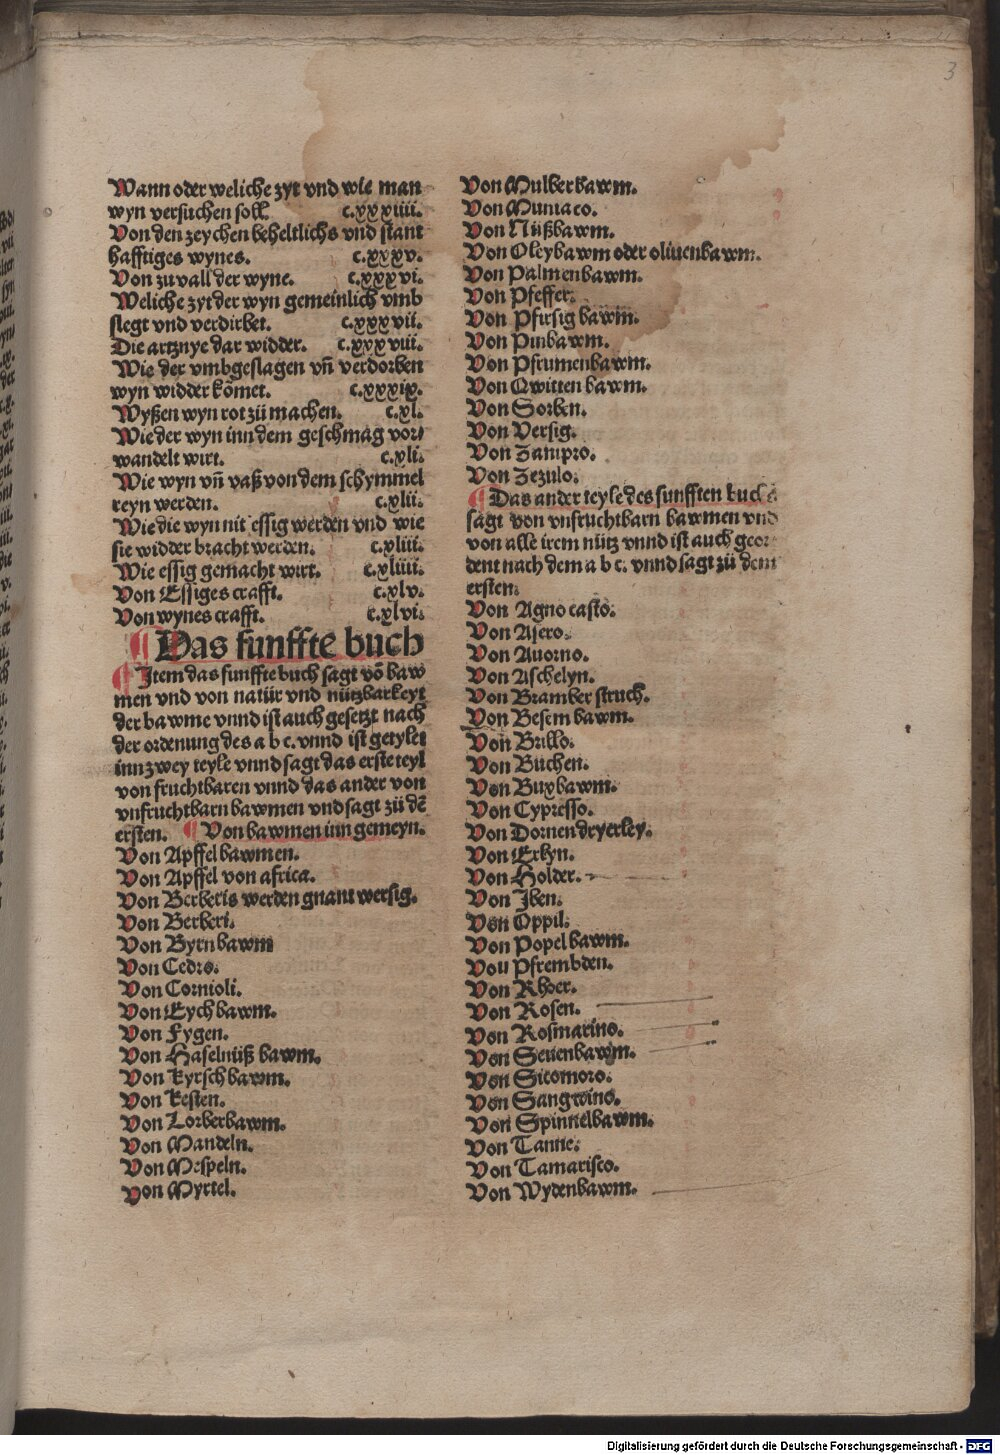 3
Wann oder weliche zyt vnd wie man
wyn versuchen soll. c.xxxiiii.
Von den zeychen beheltlichs vnd stant
hafftiges wynes. c.xxxv.
Von zuvall der wyne. c.xxxvi.
Weliche zyt der wyn gemeinlich vmb
slegt vnd verdirbet. c.xxxvii.
Die artznye dar widder. c.xxxviii.
Wie der vmbgeslagen vn̄ verdorben
wyn widder kōmet. c.xxxix.
Wyßen wyn rot zü machen. c.xl.
Wie der wyn inn dem geschmag vor/
wandelt wirt. c.xli.
Wie wyn vn̄ vaß von dem schymmel
reyn werden. c.xlii.
Wie die wyn nit essig werden vnd wie
sie widder bracht werden. c.xliii.
Wie essig gemacht wirt. c.xliiii.
Von Essiges crafft. c.xlv.
Von wynes crafft. c.xlvi.
¶ Das funffte buch
¶ Item das funffte buch sagt vō baw
men vnd von natür vnd nützbarkeyt
der bawme vnnd ist auch gesetzt nach
der ordenung des a b c. vnnd ist geteylet
inn zwey teyle vnnd sagt das erste teyl
von fruchtbaren vnnd das ander von
vnfruchtbarn bawmen vnd sagt zü dē
ersten. ¶ Von bawmen inn gemeyn.
Von Apffel bawmen.
Von Apffel von africa.
Von Berberis werden gnant wersig.
Von Berberi.
Von Byrn bawm
Von Cedro.
Von Cornioli.
Von Eych bawm.
Von Fygen.
Von Haselnüß bawm.
Von kyrsch bawm.
Von kesten.
Von Lorberbawm.
Von Mandeln.
Von Mespeln.
Von Myrtel.
Von Mulberbawm.
Von Muniaco.
Von Nüßbawm.
Von Oleybawm oder oliuenbawm.
Von Palmenbawm.
Von Pfeffer.
Von Pfirsig bawm.
Von Pinbawm.
Von Pfrumenbawm.
Von Qwitten bawm.
Von Sorben.
Von Versig.
Von Zampro.
Von Zezulo.
¶ Das ander teyle des funfften buchs
sagt von vnfruchtbarn bawmen vnd
von alle irem nütz vnnd ist auch geor
dent nach dem a b c. vnnd sagt zü dem
ersten.
Von Agno casto.
Von Asero.
Von Auorno.
Von Aschelyn.
Von Bramber struch.
Von Besem bawm.
Von Brillo.
Von Büchen.
Von Buxbawm.
Von Cypresso.
Von Dornen dryerley.
Von Erlyn.
Von Holder.
Von Iben.
Von Oppil.
Von Popel bawm.
Vou Pfrembden.
Von Rhoer.
Von Rosen.
Von Rosmarino.
Von Seuenbawm.
Von Sicomoro.
Von Sangwino.
Von Spinnelbawm.
Von Tanne.
Von Tamarisco.
Von Wydenbawm.
Digitalisierung gefördert durch die Deutsche Forschungsgemeinschaft - DFG